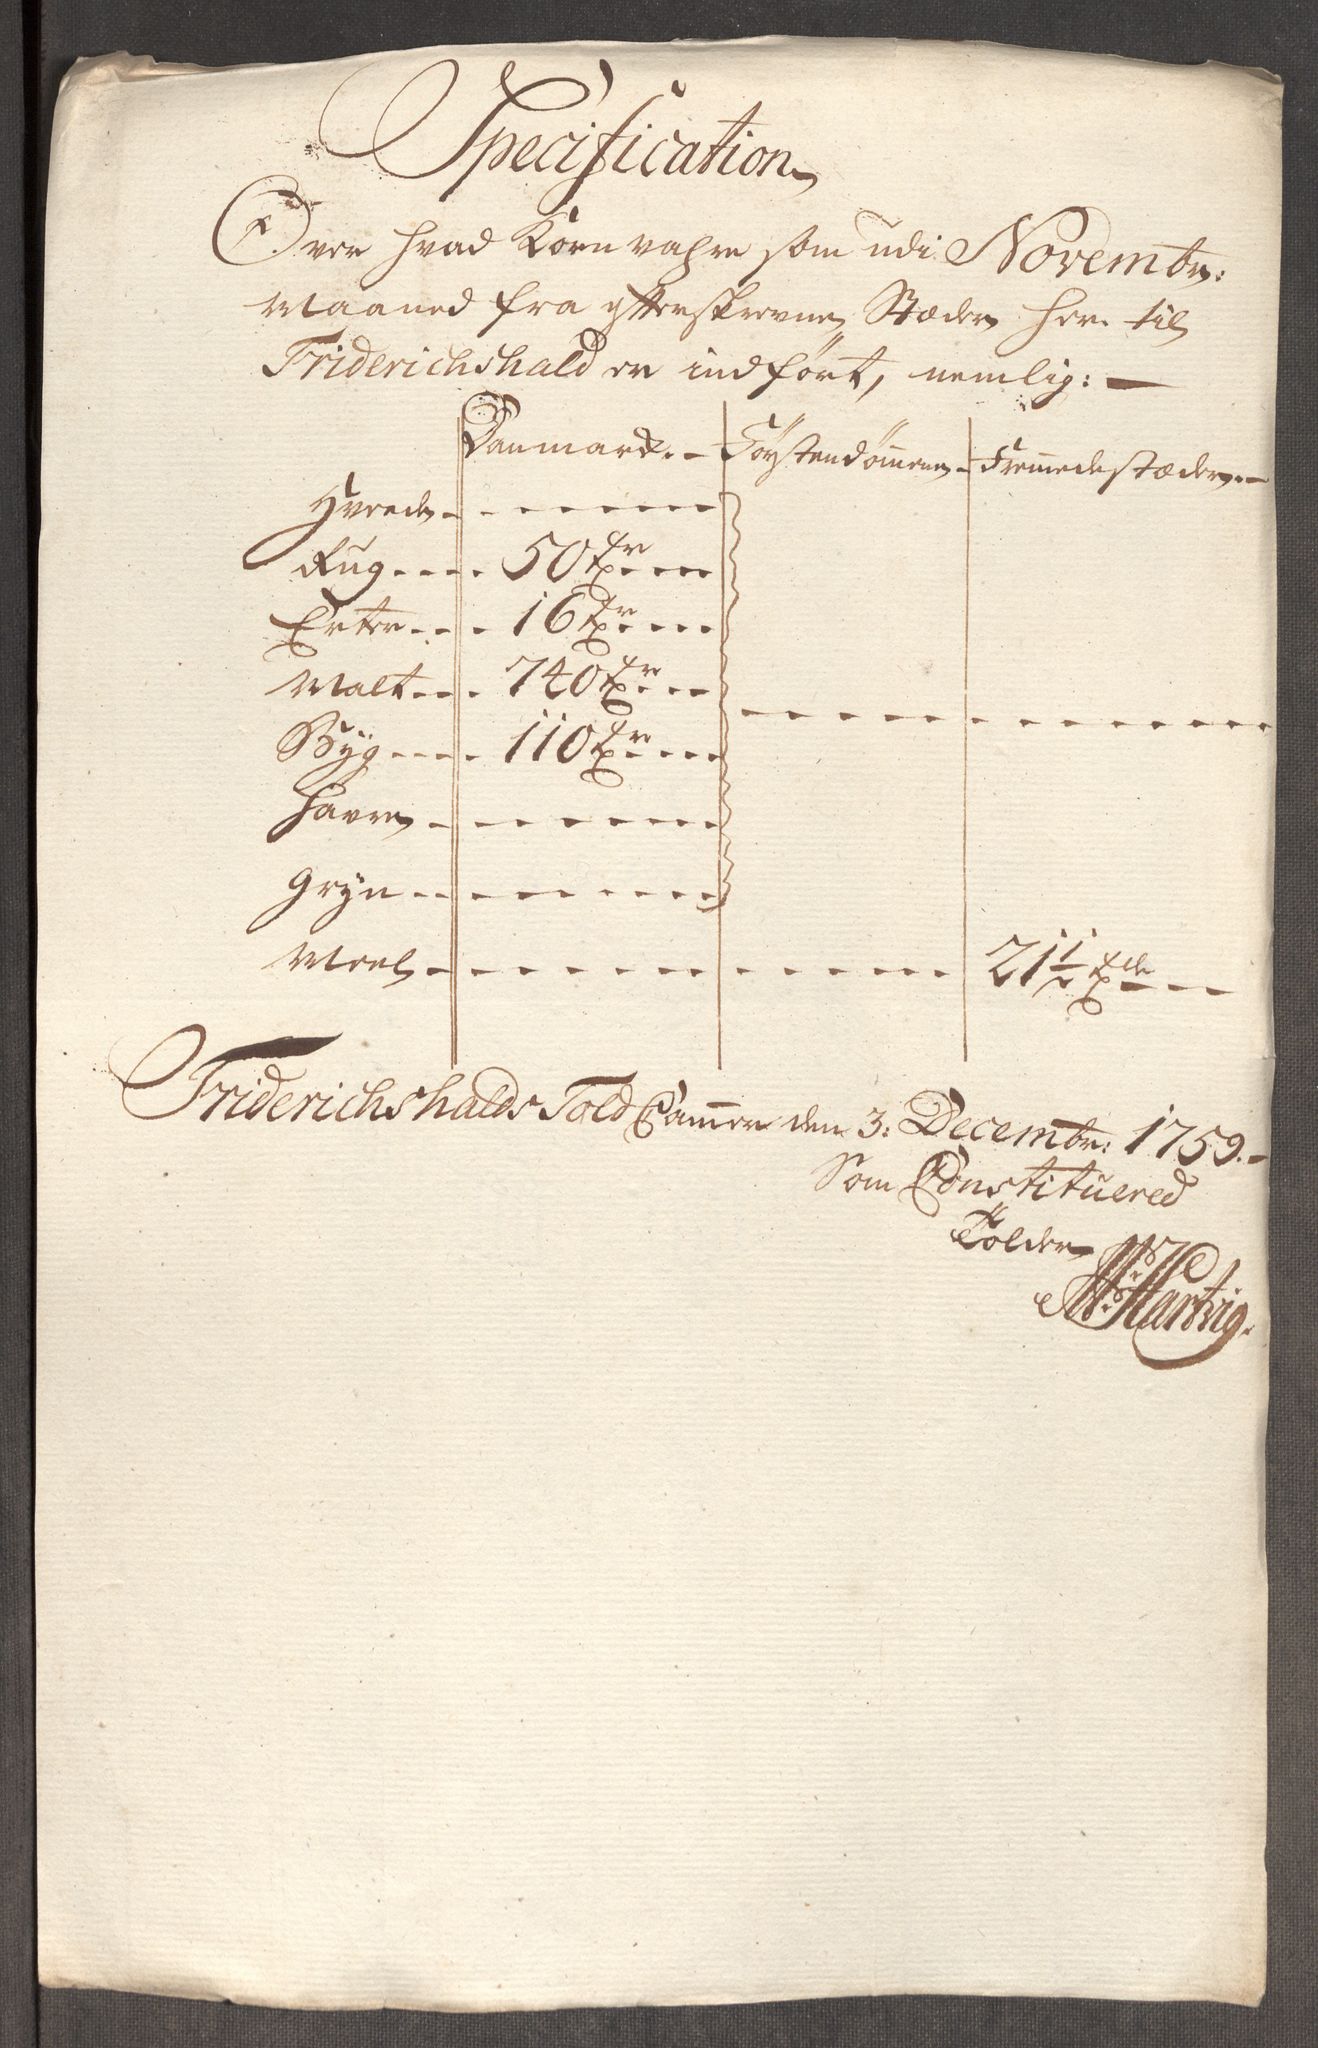 Specification
Over hvad Korn vahre som udi Novembr:
Maaned fra efterskrevne Stæder her til
Friderichshald er indført, nemlig:
Danmark. Förstendömmene Fremmede stæder.
Hvede
Rug 50 Tr
Erter 16 Tr
Malt 740 Tr
Byg 110 Tr
Havre
Gryn
Meel 21 1/2 Tde
Friderichshalds Told Cammer den 3: Decembr: 1759.
Som Constituered
Tolder
Hartvig.